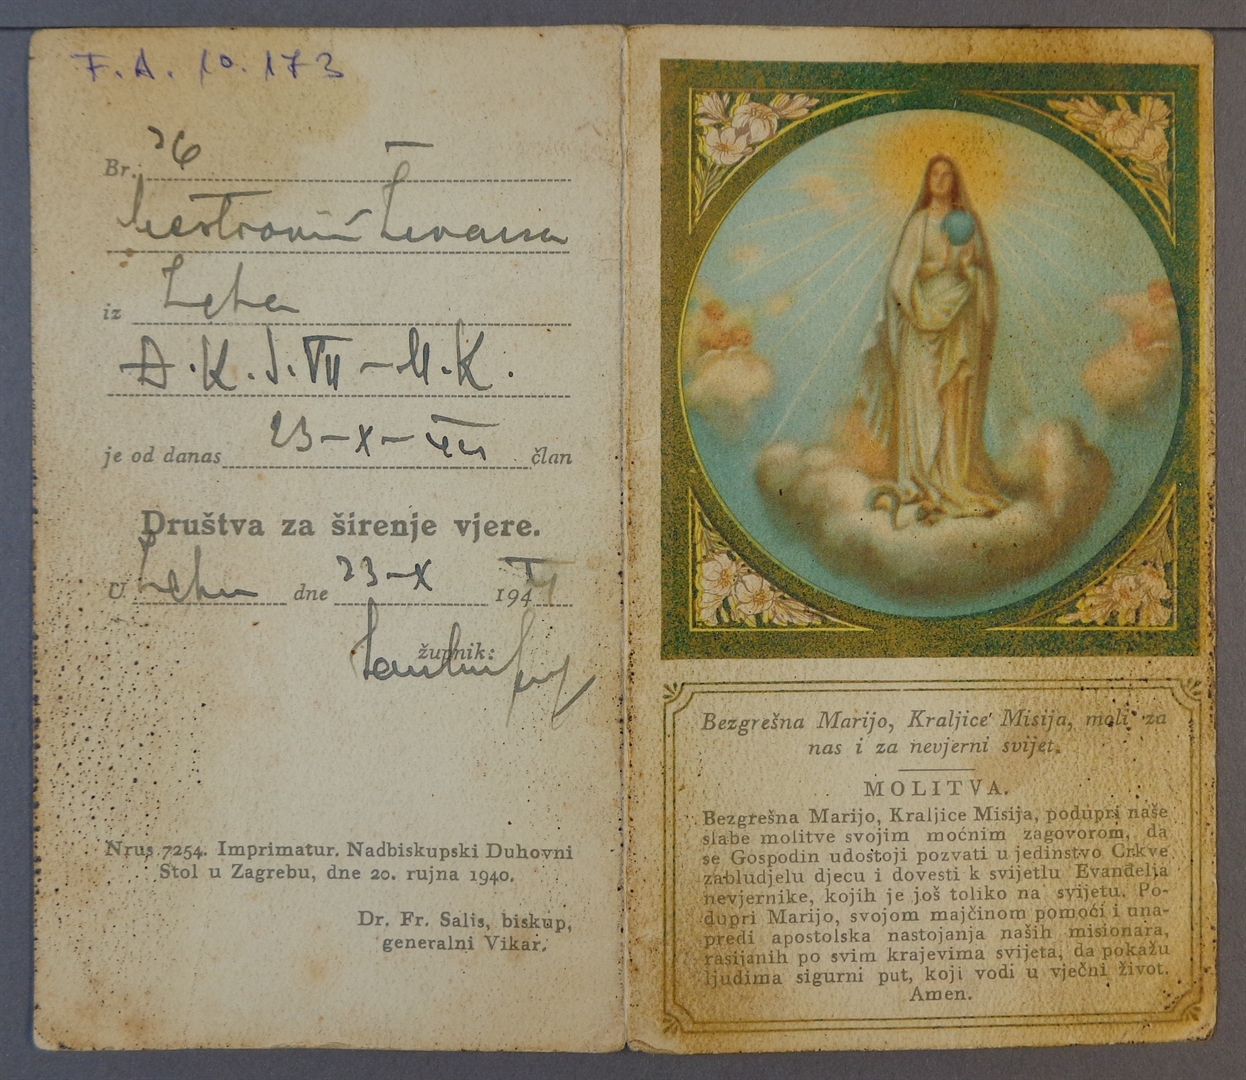 F. A. 10.173
Br. 26
iz
A. K. J. VII - M. K.
je od danas 23-X- član
Društva za širenje vjere.
U dne 23-X 194
župnik:
Nrus 7254. Imprimatur. Nadbiskupski Duhovni
Stol u Zagrebu, dne 20. rujna 1940.
Dr. Fr. Salis, biskup,
generalni Vikar.
Bezgrešna Marijo, Kraljice Misija, moli za
nas i za nevjerni svijet.
MOLITVA.
Bezgrešna Marijo, Kraljice Misija, podupri naše
slabe molitve svojim moćnim zagovorom, da
se Gospodin udostoji pozvati u jedinstvo Crkve
zabludjelu djecu i dovesti k svijetlu Evanđelja
nevjernike, kojih je još toliko na svijetu. Po-
dupri Marijo, svojom majčinom pomoći i una-
predi apostolska nastojanja naših misionara,
rasijanih po svim krajevima svijeta, da pokažu
ljudima sigurni put, koji vodi u vječni život.
Amen.